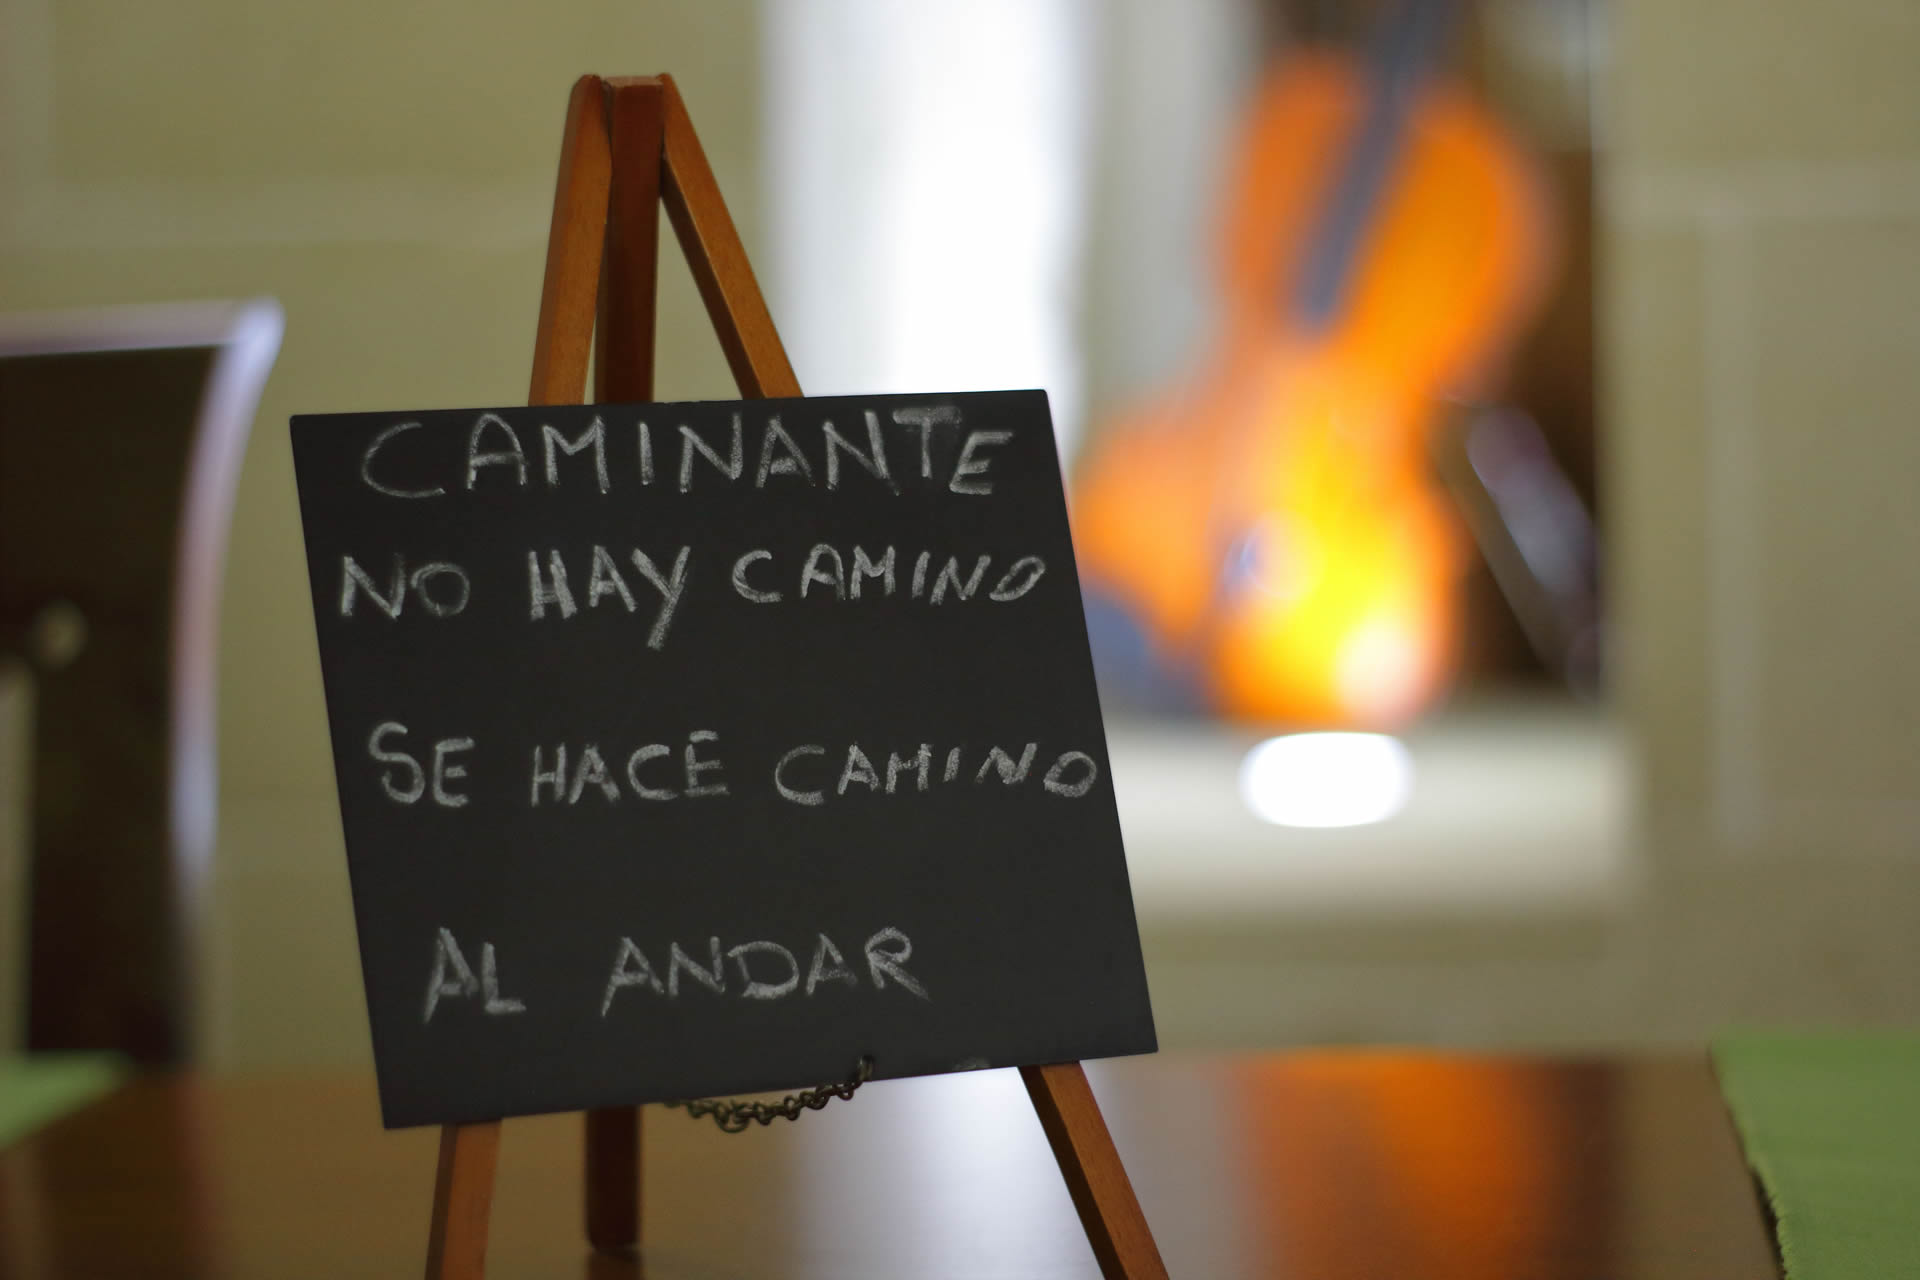 CAMINANTE
NO HAY CAMINO
SE HACE CAMINO
AL ANDAR